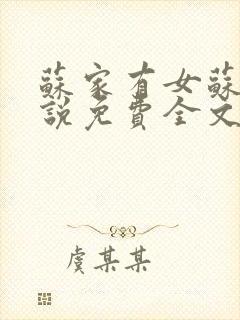 蘇家有女蘇
說免費全文
虞某某